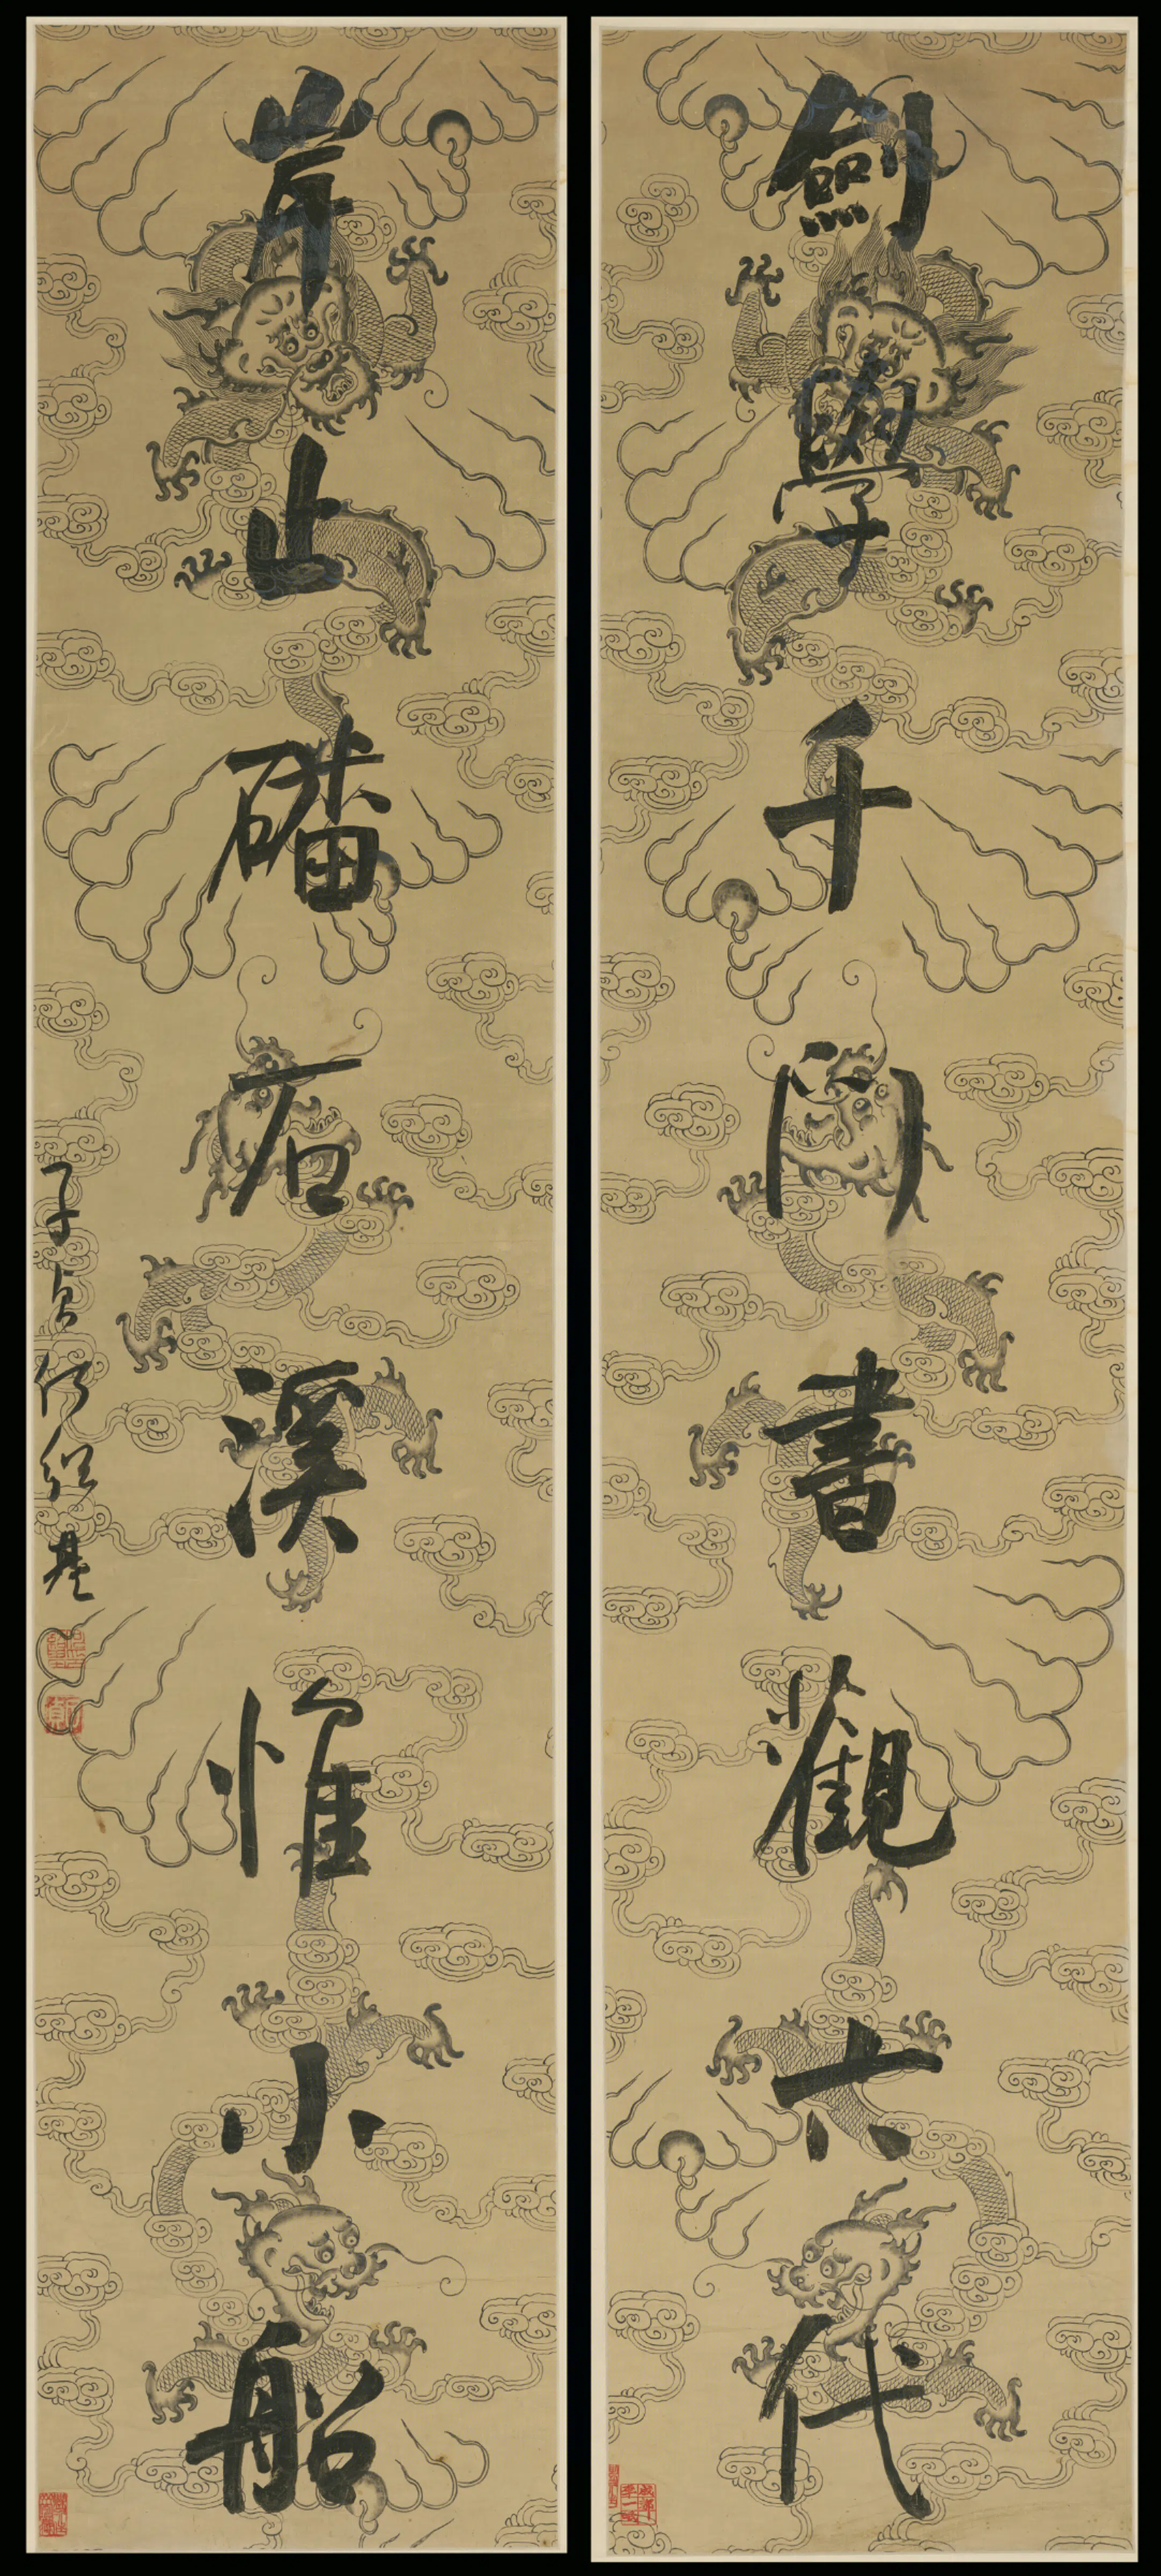 劍學千門書觀六代
岸止磻石溪惟小船
子貞何紹基